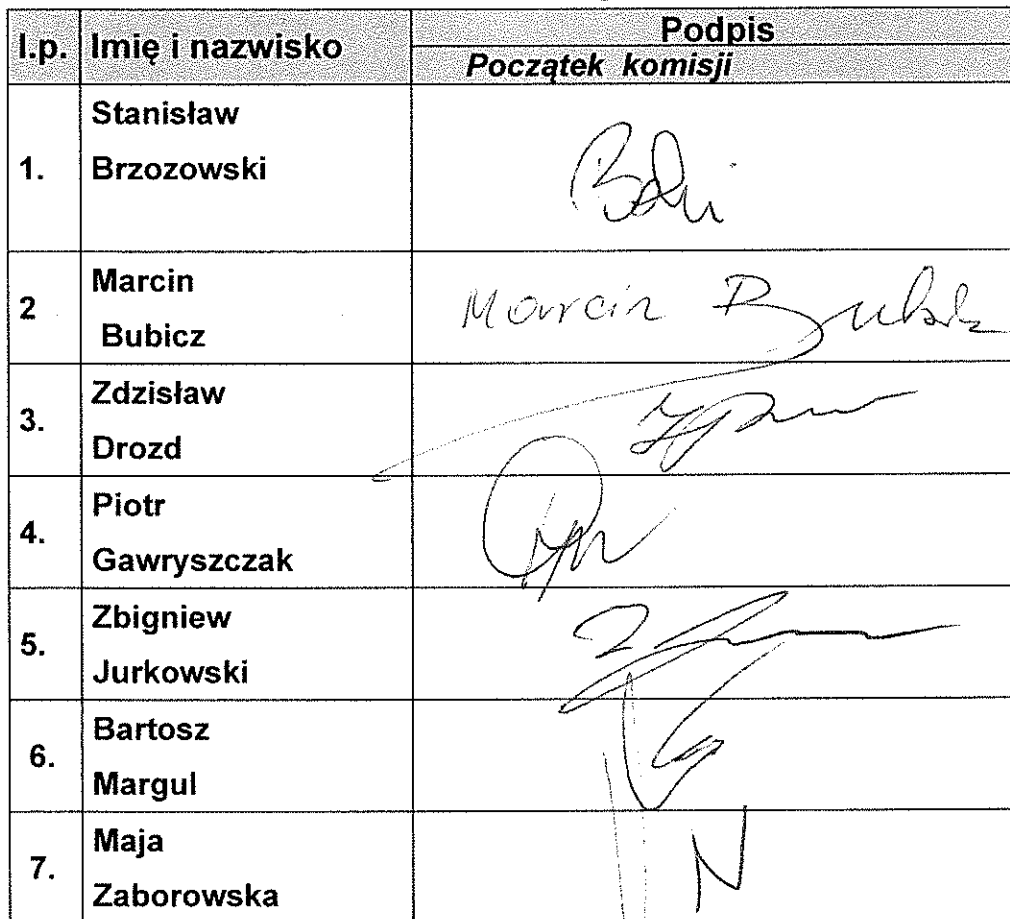 l.p. Imię i nazwisko Podpis
Początek komisji
Stanisław
1. Brzozowski
2 Marcin Marcin
Bubicz
3. Zdzisław
Drozd
4. Piotr
Gawryszczak
5. Zbigniew
Jurkowski
6. Bartosz
Margul
7. Maja N
Zaborowska